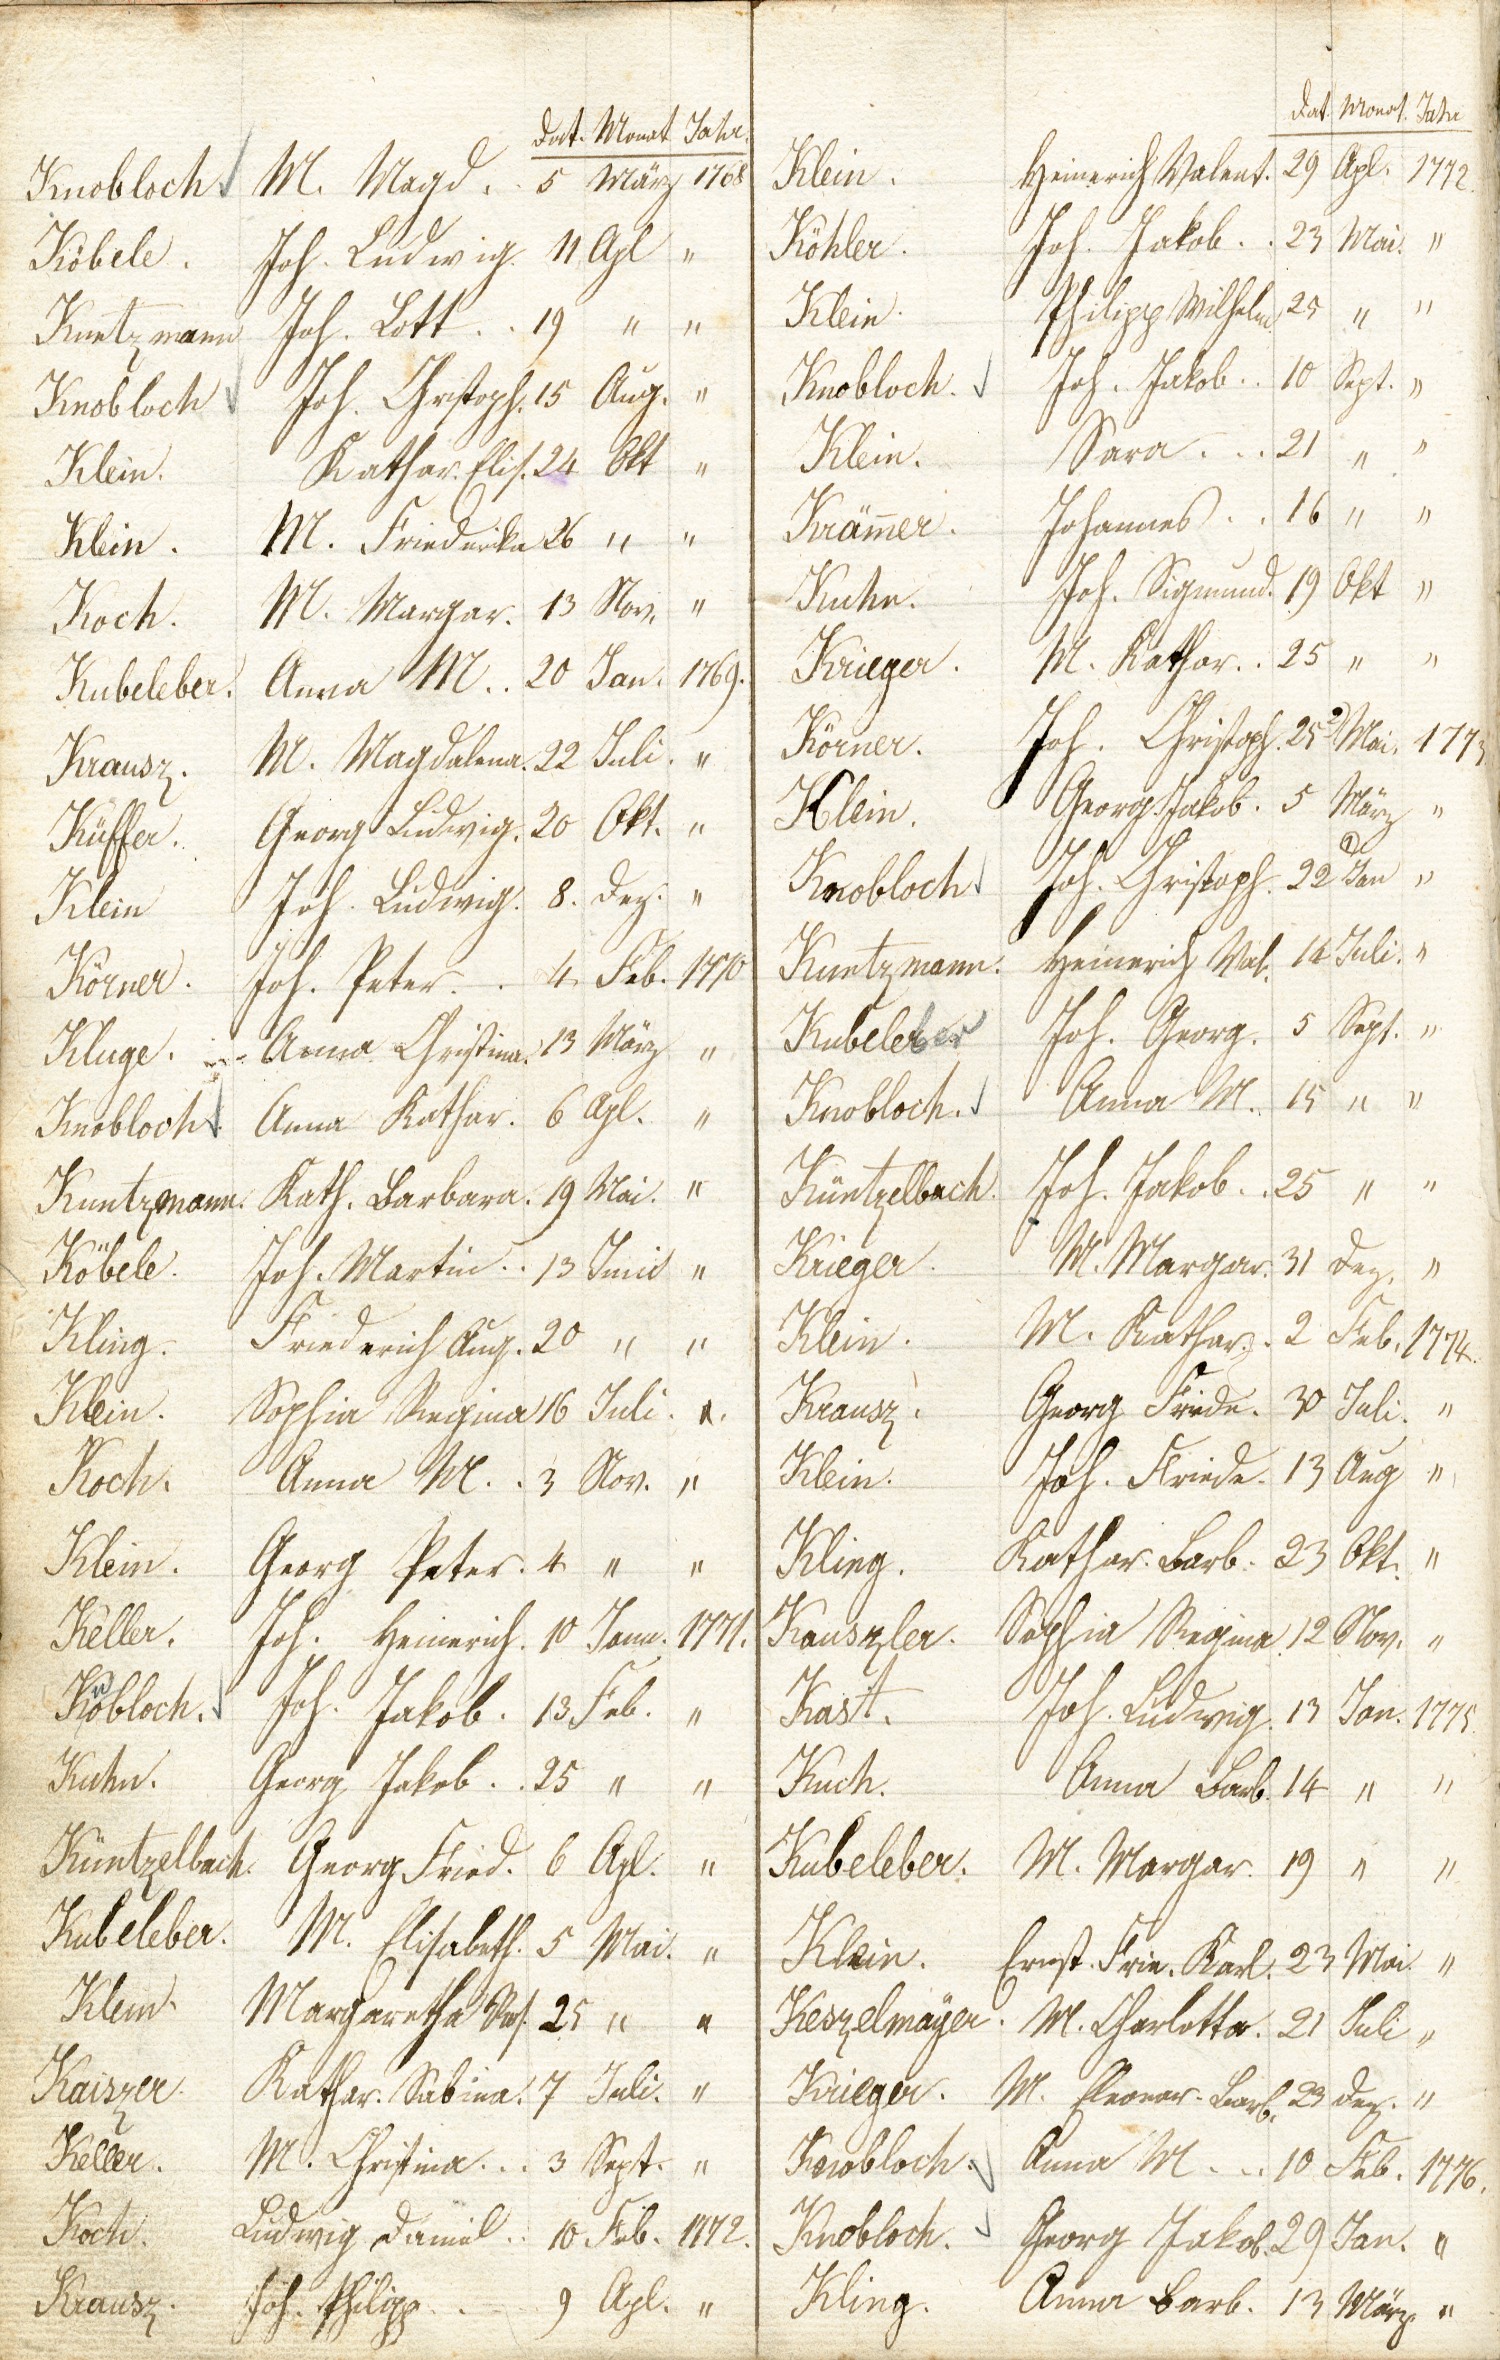 Dat. Monat Jahr.
Knobloch M. Magd. . 5 März 1768
Köbele. Joh. Ludwig. 11 Apl "
Kuntzmann Joh. Lott. . 19 " "
Knobloch Joh. Christoph. 15 Aug. "
Klein. Kathar. Elis. 24 Okt "
Klein. M. Friedericka 26 " "
Koch. M. Margar. 13 Nov. "
Kubeleber. Anna M. . 20 Jan. 1769.
Krausz. M. Magdalena. 22 Juli. "
Küffer. Georg Ludwig. 20 Okt. "
Klein Joh. Ludwig. 8. Dez. "
Körner. Joh. Peter. . 4 Feb. 1770
Kluge. Anna Christina. 13 März "
Knobloch Anna Kathar. 6 Apl. "
Kuntzmann. Kath. Barbara. 19 Mai. "
Köbele. Joh. Martin. . 13 Juni "
Kling. Friederich Aug. 20 " "
Klein. Sophia Regina 16 Juli. ".
Koch. Anna M. . 3 Nov. "
Klein. Georg Peter. 4 " "
Keller. Joh. Heinerich. 10 Jann. 1771.
Knobloch. Joh. Jakob. 13 Feb. "
Kuhn. Georg Jakob. . 25 " "
Küntzelbach. Georg Fried. 6 Apl. "
Kubeleber. M. Elisabeth. 5 Mai. "
Klein. Margaretha 25 " "
Kaiszer. Kathar. Sabina. 7 Juli. "
Keller. M. Christina. . . 3 Sept. "
Koch. Ludwig Daniel. . 10 Feb. 1772.
Krausz. Joh. Philipp. . 9 Apl. "
Dat. Monat. Jahr
Klein. Heinerich Valent. 29 Apl. 1772.
Köhler. Joh. Jakob. . 23 Mai. "
Klein. Philipp Wilhelm 25 " "
Knobloch. Joh. Jakob. . 10 Sept. "
Klein. Sara. . . 21 " "
Krämer. Johannes. . 16 " "
Kuhn. Joh. Sigmund. 19 Okt "
Krieger. M. Kathar. . 25 " "
Körner. Joh. Christoph. 25 2) Mai. 1773
Klein. Georg Jakob. 5 März "
Knobloch Joh. Christoph. 22 1) Jan "
Kuntzmann. Heinerich Val. 14 Juli. "
Kubeleber Joh. Georg. 5 Sept. "
Knobloch. Anna M. . 15 " "
Küntzelbach. Joh. Jakob. . 25 " "
Krieger. M. Margar. 31 Dez. "
Klein. M. Kathar. . 2 Feb. 1774.
Krausz. Georg Friede. 30 Juli. "
Klein. Joh. Friede. 13 Aug "
Kling. Kathar. Barb. 23 Okt. "
Kauszler. Sophia Regina. 12 Nov. "
Kast. Joh. Ludwig. 13 Jan. 1775.
Kuch. Anna Barb. 14 " "
Kubeleber. M. Margar. 19 " "
Klein. Ernst. Frie. Karl. 23 Mai. "
Keszelmäyer. M. Charlotta. 21 Juli "
Krieger. M. Eleonor. Barb. 23 Dez. "
Knobloch. Anna M. . . 10 Feb. 1776.
Knobloch. Georg Jakob. 29 Jan. "
Kling. Anna Barb. 13 März "